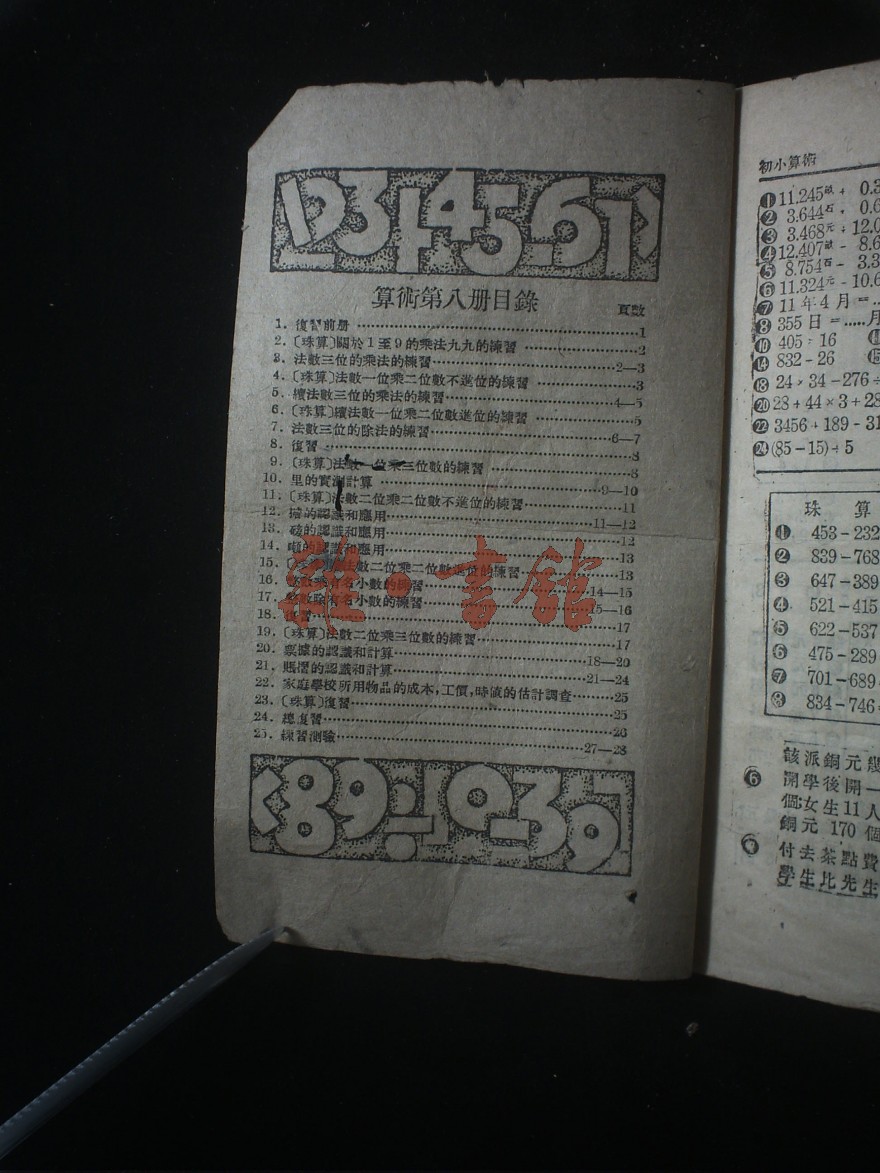 算術第八册目錄
頁數
1. 復習前册 1
2. 〔珠算〕關於1至9的乘法九九的練習 2
3. 法數三位的乘法的練習 2—3
4. 〔珠算〕法數一位乘二位數不進位的練習 3
5. 續法數三位的乘法的練習 4—5
6. 〔珠算〕續法數一位乘二位數進位的練習 5
7. 法數三位的除法的練習 6—7
8. 復習 8
9. 〔珠算〕法數一位乘三位數的練習 8
10. 里的實測計算 9—10
11. 〔珠算〕法數二位乘二位數不進位的練習 11
12. 的認識和應用 11—12
13. 磅的認識和應用 12
14. 噸的認識和應用 13
15. 法數二位乘二位數進位的練習 13
16. 數乘有名小數的練習 14—15
17. 整數除有名小數的練習 15—16
18. 復習 17
19. 〔珠算〕法數二位乘三位數的練習 17
20. 票據的認識和計算 18—20
21. 賬簿的認識和計算 21—24
22. 家庭學校所用物品的成本,工價,時值的估計調查 25
23. 〔珠算〕復習 25
24. 總復習 26
25. 練習測驗 27—28
雜·書館
初小算術
❶ 11.245畝 + 0.3
❷ 3.644石 + 0.6
❸ 3.468元 + 12.0
❹ 12.407畝 - 8.6
❺ 8.754石 - 3.3
❻ 11.324元 - 10.6
❼ 11年4月=
❽ 355日=.....月
❿ 405÷16
⓮ 832-26
⓲ 24×34-276÷
⓴ 28+44×3+28
㉒ 3456+189-31
㉔ (85-15)÷5
珠 算
❶ 453-232
❷ 839-768
❸ 647-389
❹ 521-415
❺ 622-537
❻ 475-289
❼ 701-689
❽ 834-746
該派銅元幾
❻ 開學後開一
個;女生11人
銅元 170 個
付去茶點費
學生比先生